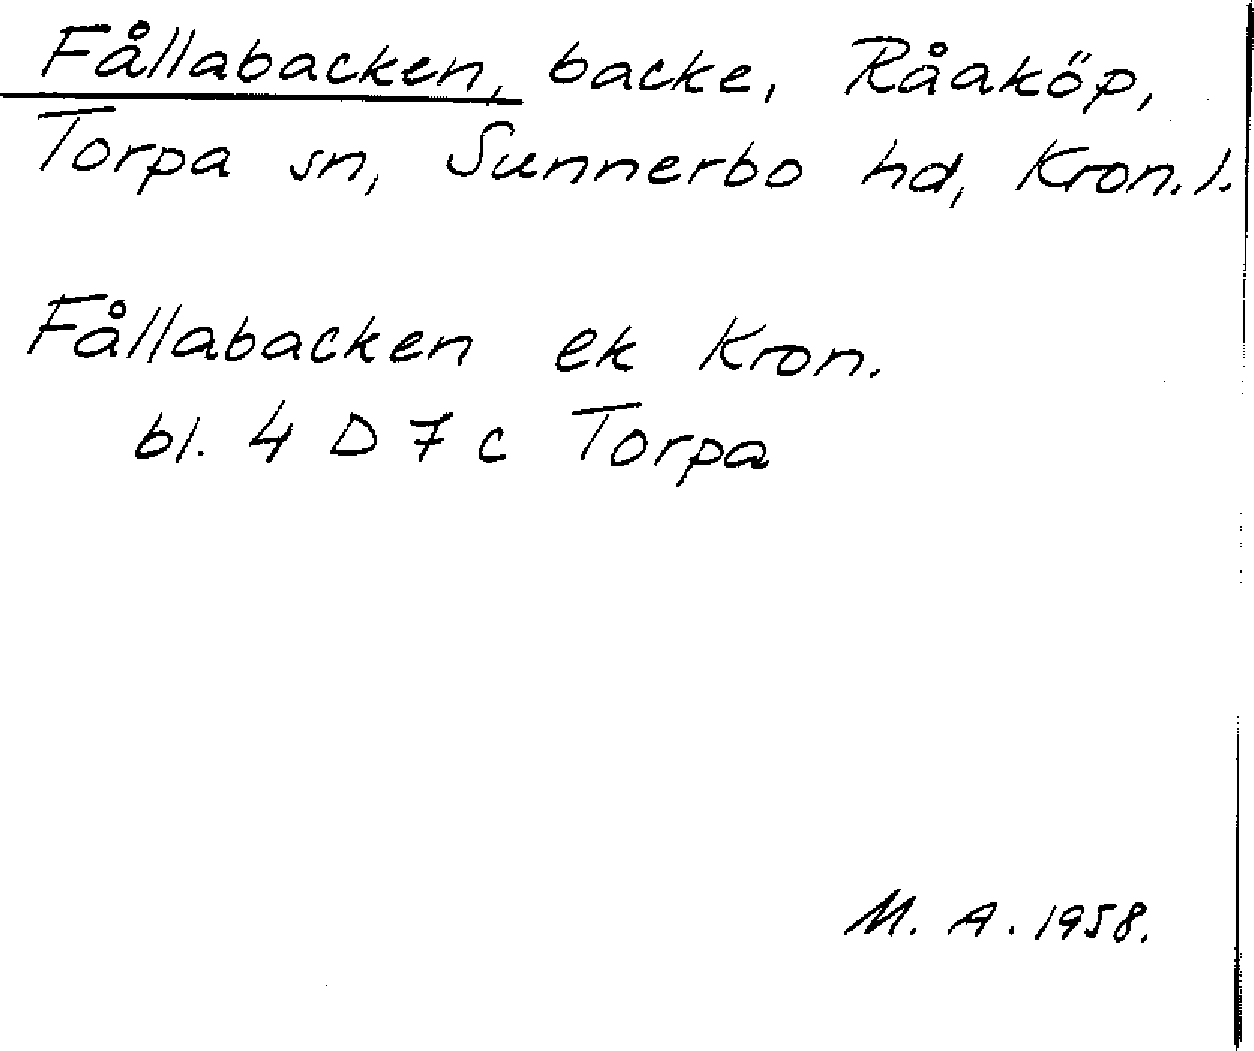 Fållabacken, backe, Råaköp,
Torpa sn, Sunnerbo hd, Kron. l.
Fållabacken ek Kron.
bl. 4 D 7 c Torpa
M. A. 1958.